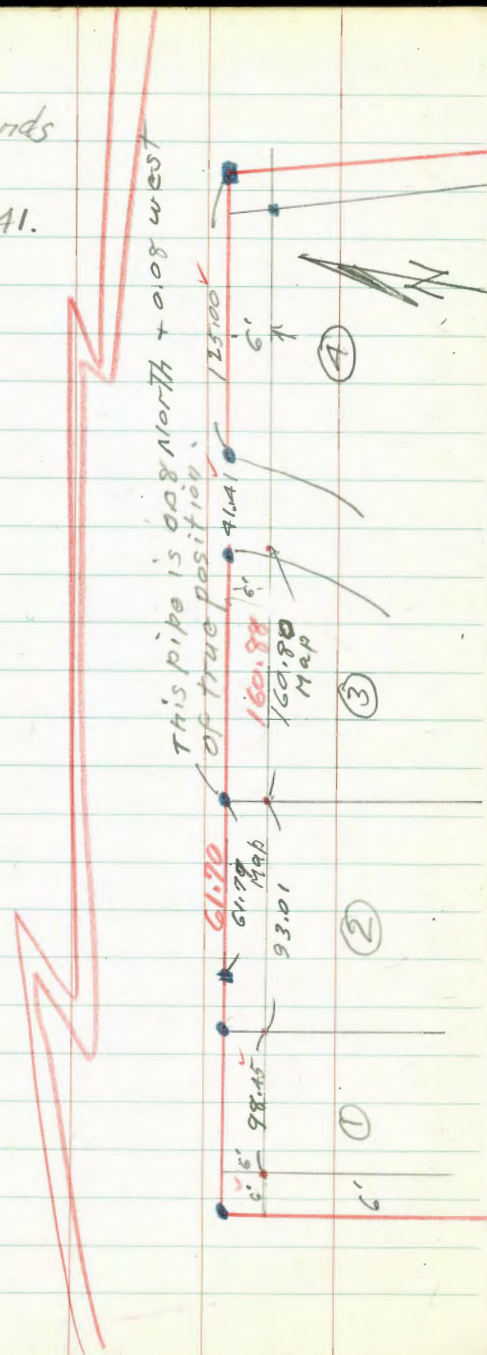 nds
41.
This pipe is 0.08 North + 0.08 west
of true position.
125.00
6'
N
4
41.41
6'
160.88
160.80
Map
3
61.70
61.79
Map
93.01
2
98.45
6'
6'
1
6'